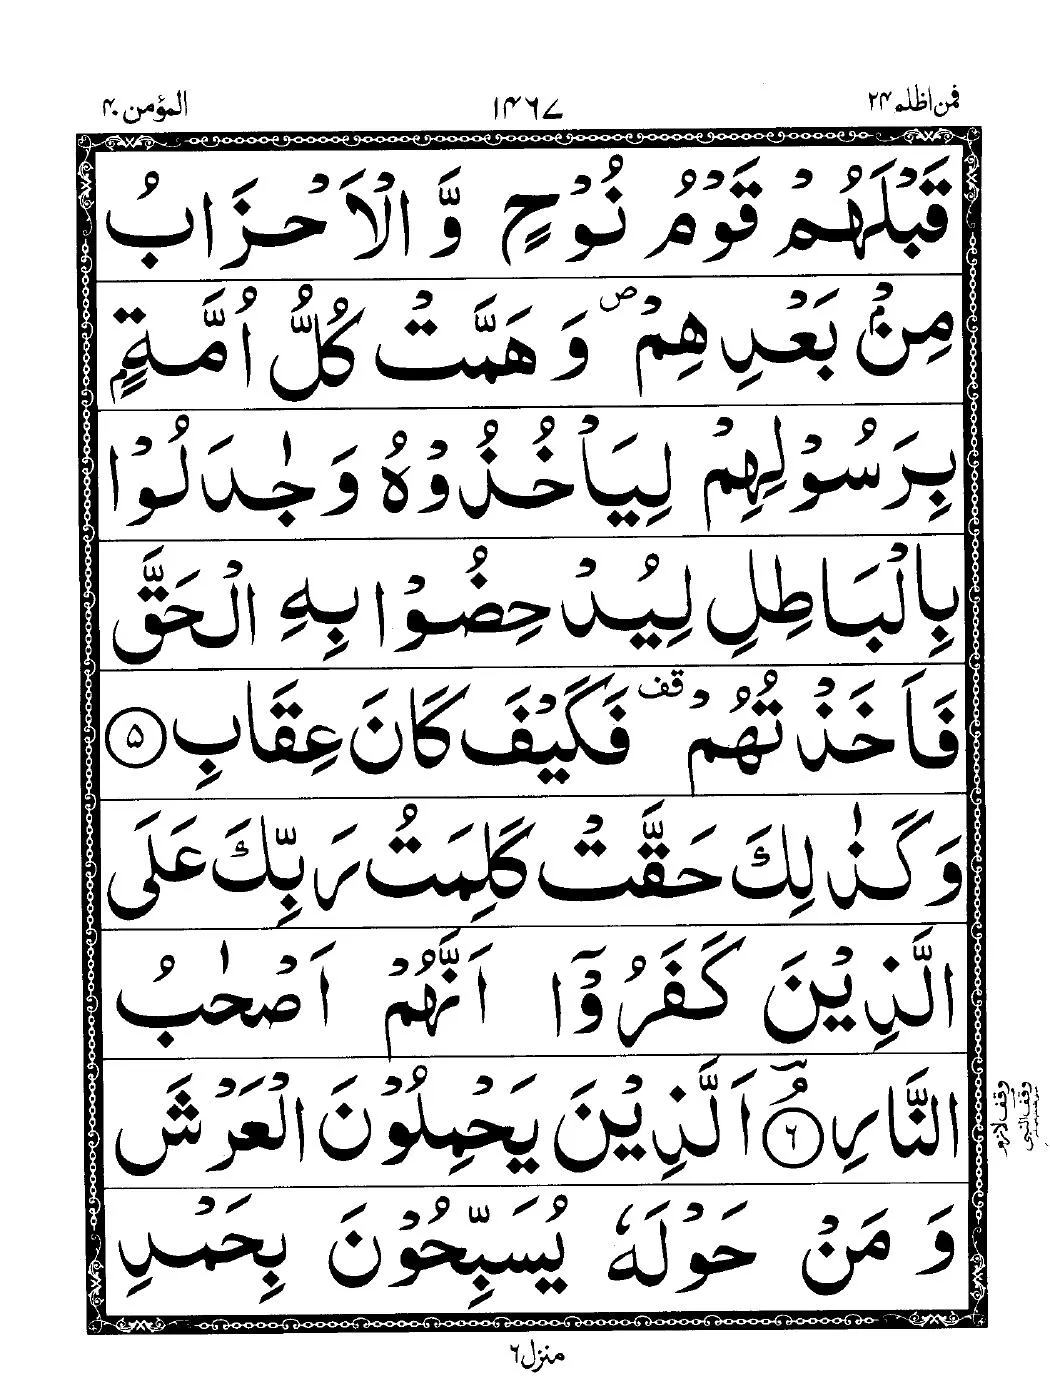 المؤمن ۴۰
۱۴۶۷
فمن اظلم ۲۴
قَبۡلَهُمۡ قَوۡمُ نُوۡحٍ وَّ الۡاَحۡزَابُ
مِنۡۢ بَعۡدِهِمۡ ص وَ هَمَّتۡ كُلُّ اُمَّةٍۭ
بِرَسُوۡلِهِمۡ لِيَاۡخُذُوۡهُ وَ جٰدَلُوۡا
بِالۡبَاطِلِ لِيُدۡحِضُوۡا بِهِ الۡحَقَّ
فَاَخَذۡتُهُمۡ قف فَكَيۡفَ كَانَ عِقَابِ ۵
وَ كَذٰلِكَ حَقَّتۡ كَلِمَتُ رَبِّكَ عَلَى
الَّذِيۡنَ كَفَرُوۡۤا اَنَّهُمۡ اَصۡحٰبُ
النَّارِ ۶ۘ اَلَّذِيۡنَ يَحۡمِلُوۡنَ الۡعَرۡشَ
وَ مَنۡ حَوۡلَهٗ يُسَبِّحُوۡنَ بِحَمۡدِ
وقف لازم
وقف النبي
منزل ۶